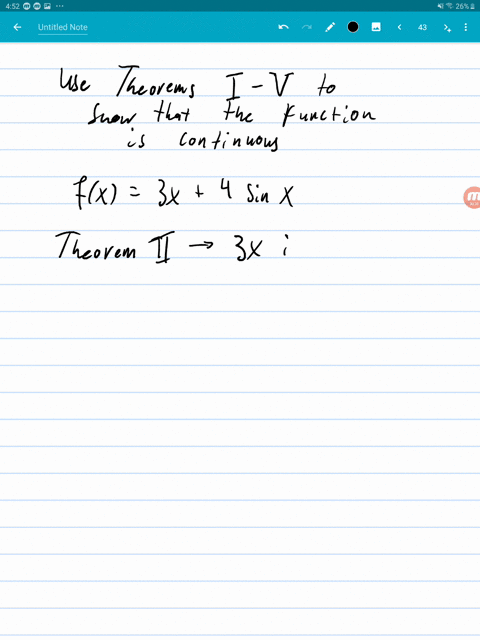 4:52
26%
Untitled Note
43
Use Theorems I - V to
show that the function
is continuous
f(x) = 3x + 4 sin x
Theorem II → 3x i